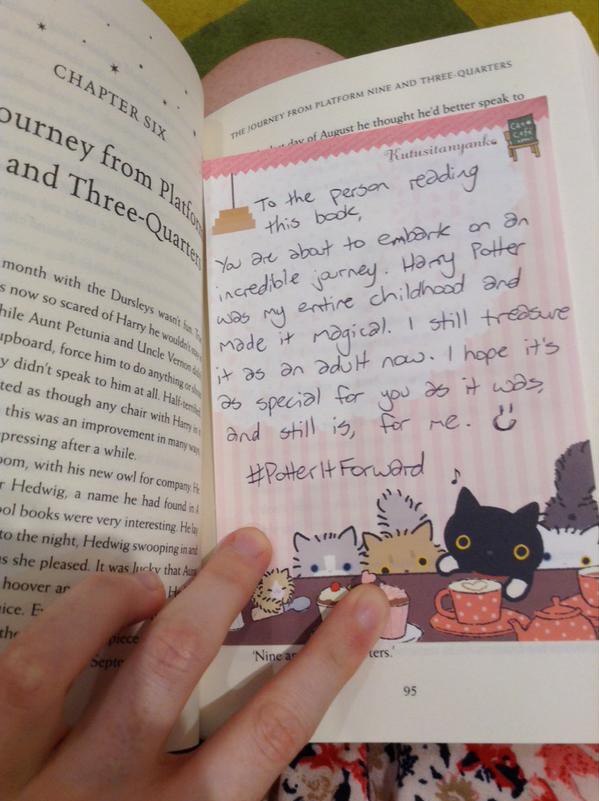 CHAPTER SIX
ourney from Platfor
and Three-Quarters
month with the Dursleys wasn't fun.
now so scared of Harry he wouldn't
hile Aunt Petunia and Uncle Vernon
upboard, force him to do anything or
y didn't speak to him at all.
ted as though any chair with Harry in
this was an improvement in many ways
pressing after a while.
oom, with his new owl for company. He
Hedwig, a name he had found in A
ool books were very interesting. He lay
to the night, Hedwig swooping in and
s she pleased. It was lucky that
hoover
piece
Septe
THE JOURNEY FROM PLATFORM NINE AND THREE-QUARTERS
day of August he thought he'd better speak to
Kutusitanyanko
Cat
Cafe
To the person reading
this book,
You are about to embark on an
incredible journey. Harry Potter
was my entire childhood and
made it magical. I still treasure
it as an adult now. I hope it's
as special for you as it was,
and still is, for me.
#PotterItForward
'Nine an ters.'
95